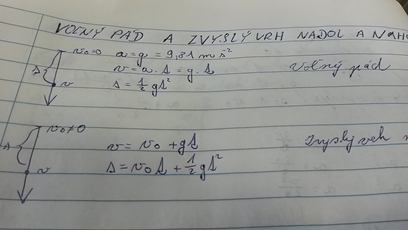 VOĽNÝ PÁD A ZVYSLÝ VRH NADOL A NAHO
v₀=0 a=g = 9,81 m s⁻²
v = a.t = g.t voľný pád
s v
s = ½ gt²
v₀≠0
s v = v₀ + gt Zvyslý vrh
v s = v₀t + ½ gt²